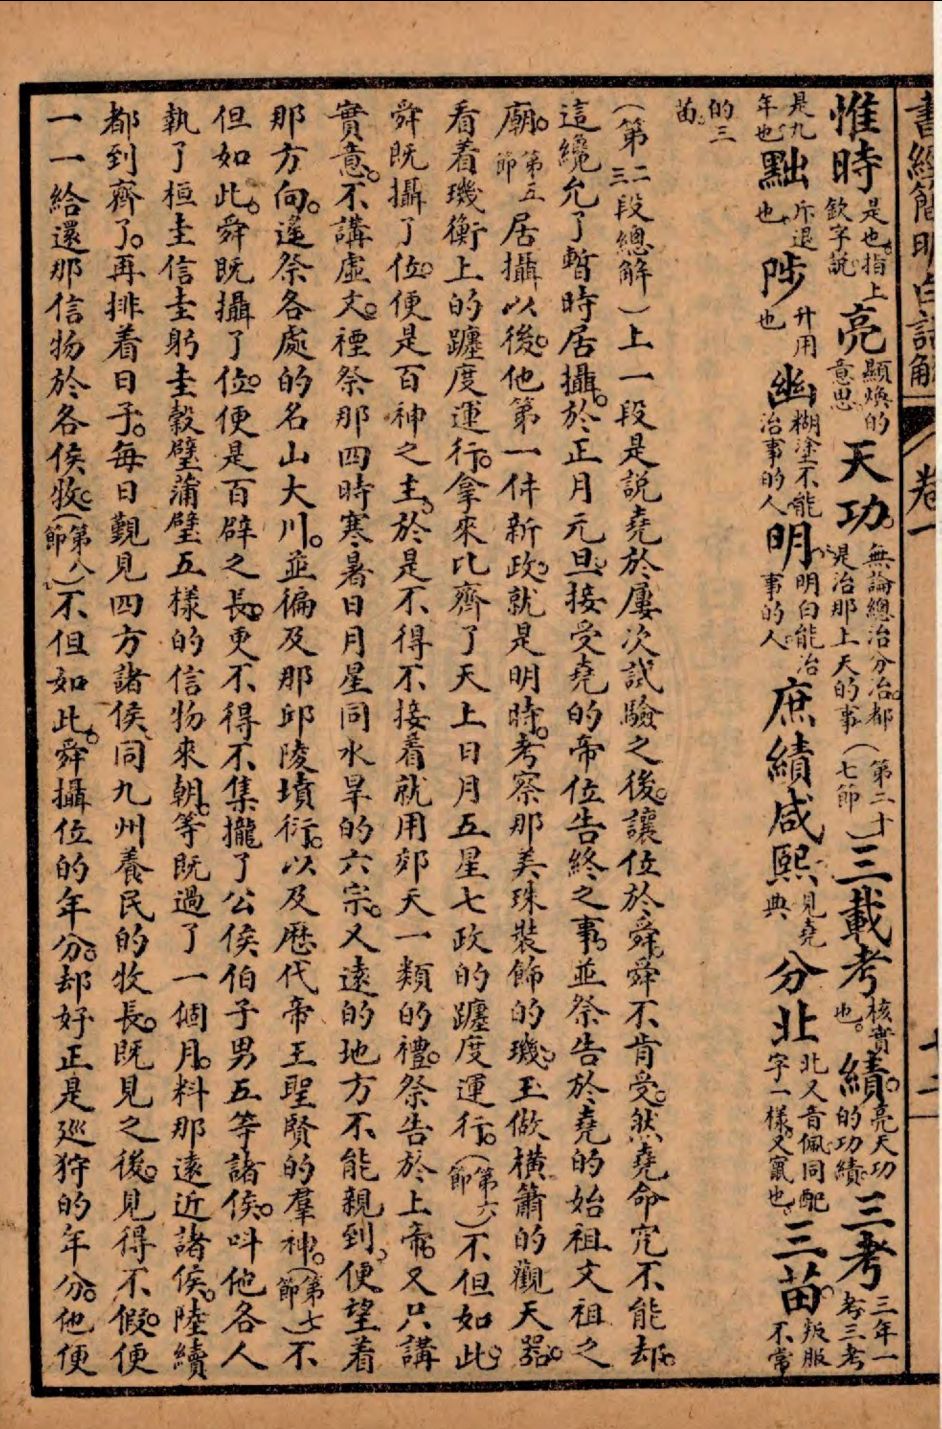 書經簡明白話解 卷一 十二
惟時是也指上欽字說亮顯煥的意思天功無論總治分治都是治那上天的事(第二十七節)三載考核實也績亮天功的功績三考三年一考三考
是九年也黜斥退也陟升用也幽糊塗不能治事的人明明白能治事的人庶績咸熙見堯典分北北又音佩同配字一樣又竄也三苗叛服不常
的三苗
(第二三段總解)上一段是說堯於屢次試驗之後讓位於舜舜不肯受然堯命究不能却
這纔允了暫時居攝於正月元旦接受堯的帝位告終之事並祭告於堯的始祖文祖之
廟第五節居攝以後他第一件新政就是明時考察那美珠裝飾的璣玉做橫簫的觀天器
看着璣衡上的躔度運行拿來比齊了天上日月五星七政的躔度運行(第六節)不但如此
舜既攝了位便是百神之主於是不得不接着就用郊天一類的禮祭告於上帝又只講
實意不講虛文禋祭那四時寒暑日月星同水旱的六宗又遠的地方不能親到便望着
那方向遙祭各處的名山大川並徧及那邱陵墳衍以及歷代帝王聖賢的羣神(第七節)不
但如此舜既攝了位便是百辟之長更不得不集攏了公侯伯子男五等諸侯呌他各人
執了桓圭信圭躬圭穀璧蒲璧五樣的信物來朝等既過了一個月料那遠近諸侯陸續
都到齊了再排着日子每日覲見四方諸侯同九州養民的牧長既見之後見得不假便
一一給還那信物於各侯牧(第八節)不但如此舜攝位的年分却好正是廵狩的年分他便